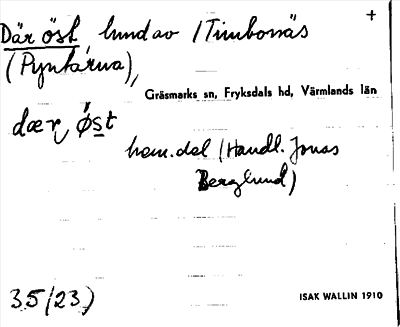 Där öst, hund av /Timbonäs +
(Pyntarna),
Gräsmarks sn, Fryksdals hd, Värmlands län
dær øst
hem.del (Handl. Jonas
Berglund)
35/23) ISAK WALLIN 1910